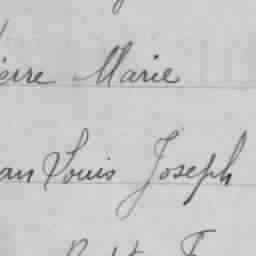 ierre Marie
an Louis Joseph